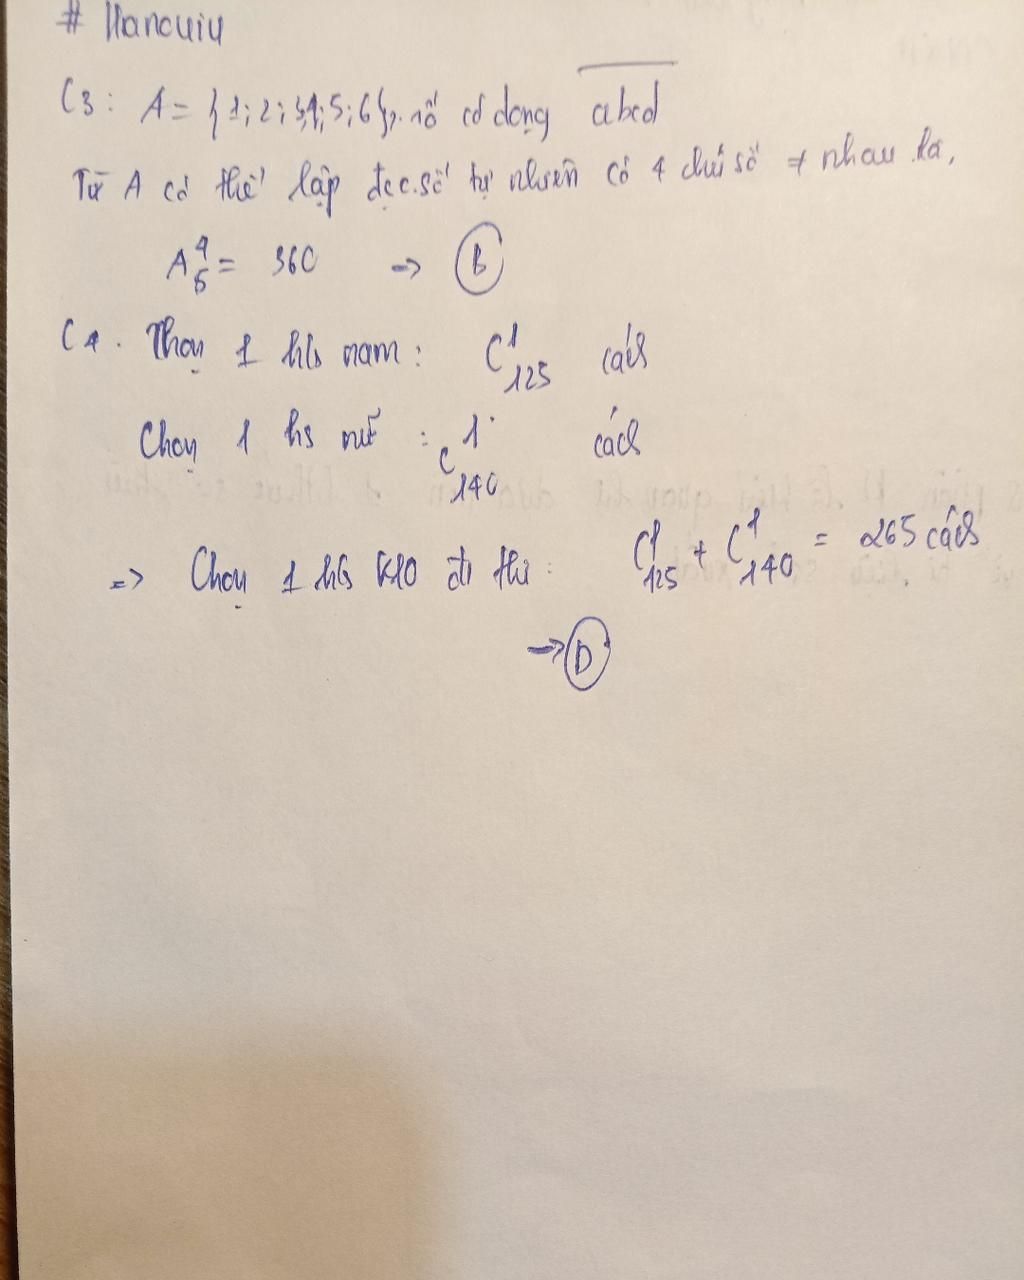 # Hancuiu
C3: A = {1; 2; 3; 4; 5; 6}, số có dạng abcd
Từ A có thể lập đc c.số tự nhiên có 4 chữ số ≠ nhau là,
A⁴₆ = 360 → B
C4. Chọn 1 hs nam: C¹₁₂₅ cách
Chọn 1 hs nữ : C¹₁₄₀ cách
=> Chọn 1 hs K10 đi thi : C¹₁₂₅ + C¹₁₄₀ = 265 cách
→ D